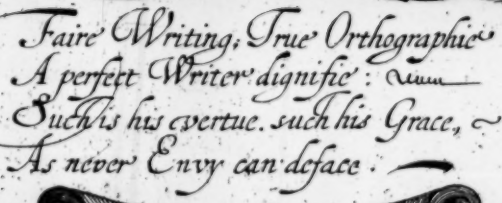 Faire Writing; True Orthographie
A perfect Writer dignifie:
Such is his vertue. such his Grace,
As never Envy can deface.